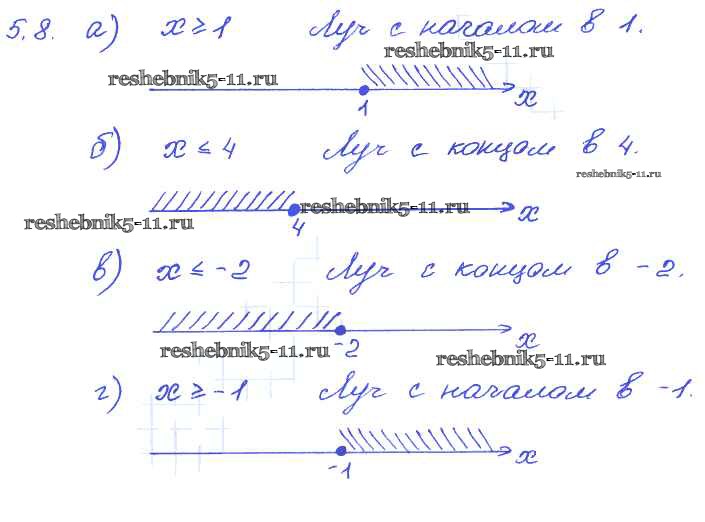 5.8. а) x ≥ 1 Луч с началом в 1.
reshebnik5-11.ru
reshebnik5-11.ru
1 x
б) x ≤ 4 Луч с концом в 4.
reshebnik5-11.ru
reshebnik5-11.ru
reshebnik5-11.ru
4 x
в) x ≤ -2 Луч с концом в -2.
-2 x
reshebnik5-11.ru
reshebnik5-11.ru
г) x ≥ -1 Луч с началом в -1.
-1 x